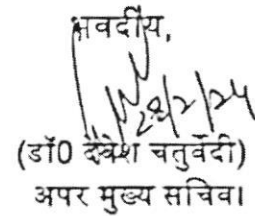 भवदीय,
28/2/24
(डॉ0 देवेश चतुर्वेदी)
अपर मुख्य सचिव।